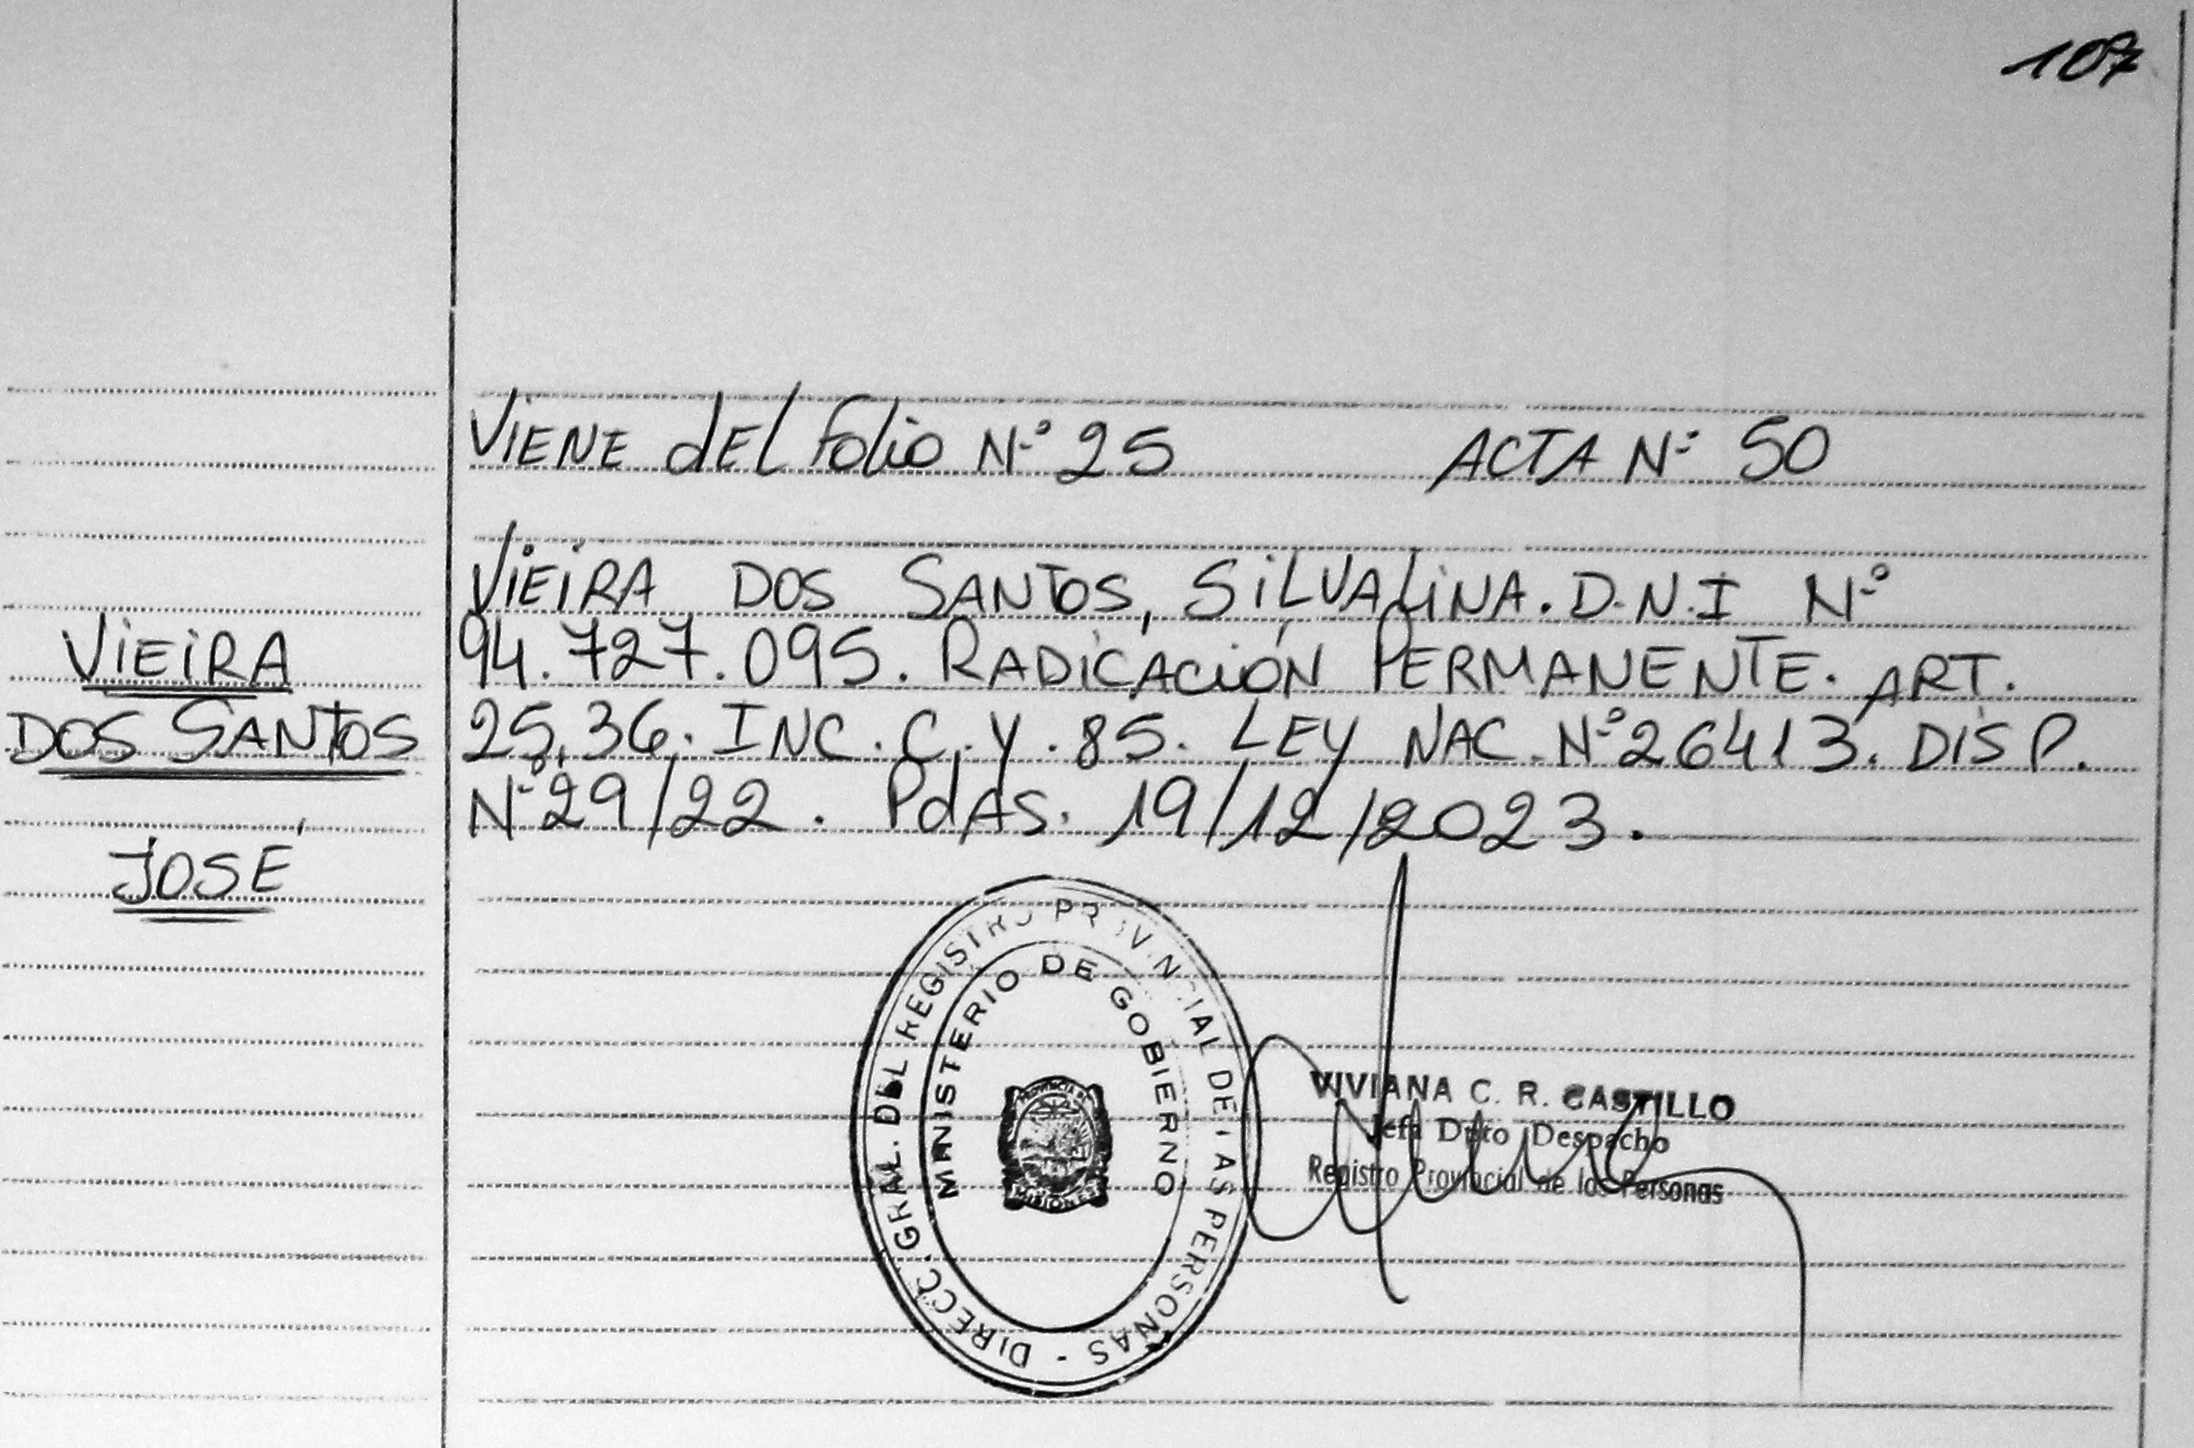 107
VIENE dEL Folio N° 25 ACTA N° 50
VIEIRA DOS SANTOS, SILVALINA. D.N.I N°
94.727.095. RADICACIÓN PERMANENTE. ART.
25,36. INC. C. Y. 85. LEY NAC. N° 26413. DISP.
N° 29/22. PdAS. 19/12/2023.
VIEIRA
DOS SANTOS
JOSÉ
DIRECC. GRAL. DEL REGISTRO PROVINCIAL DE LAS PERSONAS -
MINISTERIO DE GOBIERNO
PROVINCIA DE
MISIONES
VIVIANA C. R. CASTILLO
Jefa Dpto Despacho
Registro Provincial de las Personas